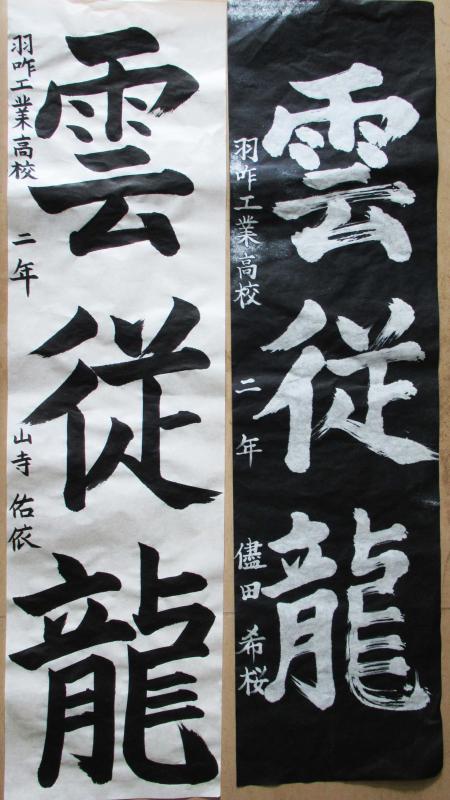 雲従龍
羽咋工業高校 二年 儘田 希桜
雲従龍
羽咋工業高校 二年 山寺 佑依